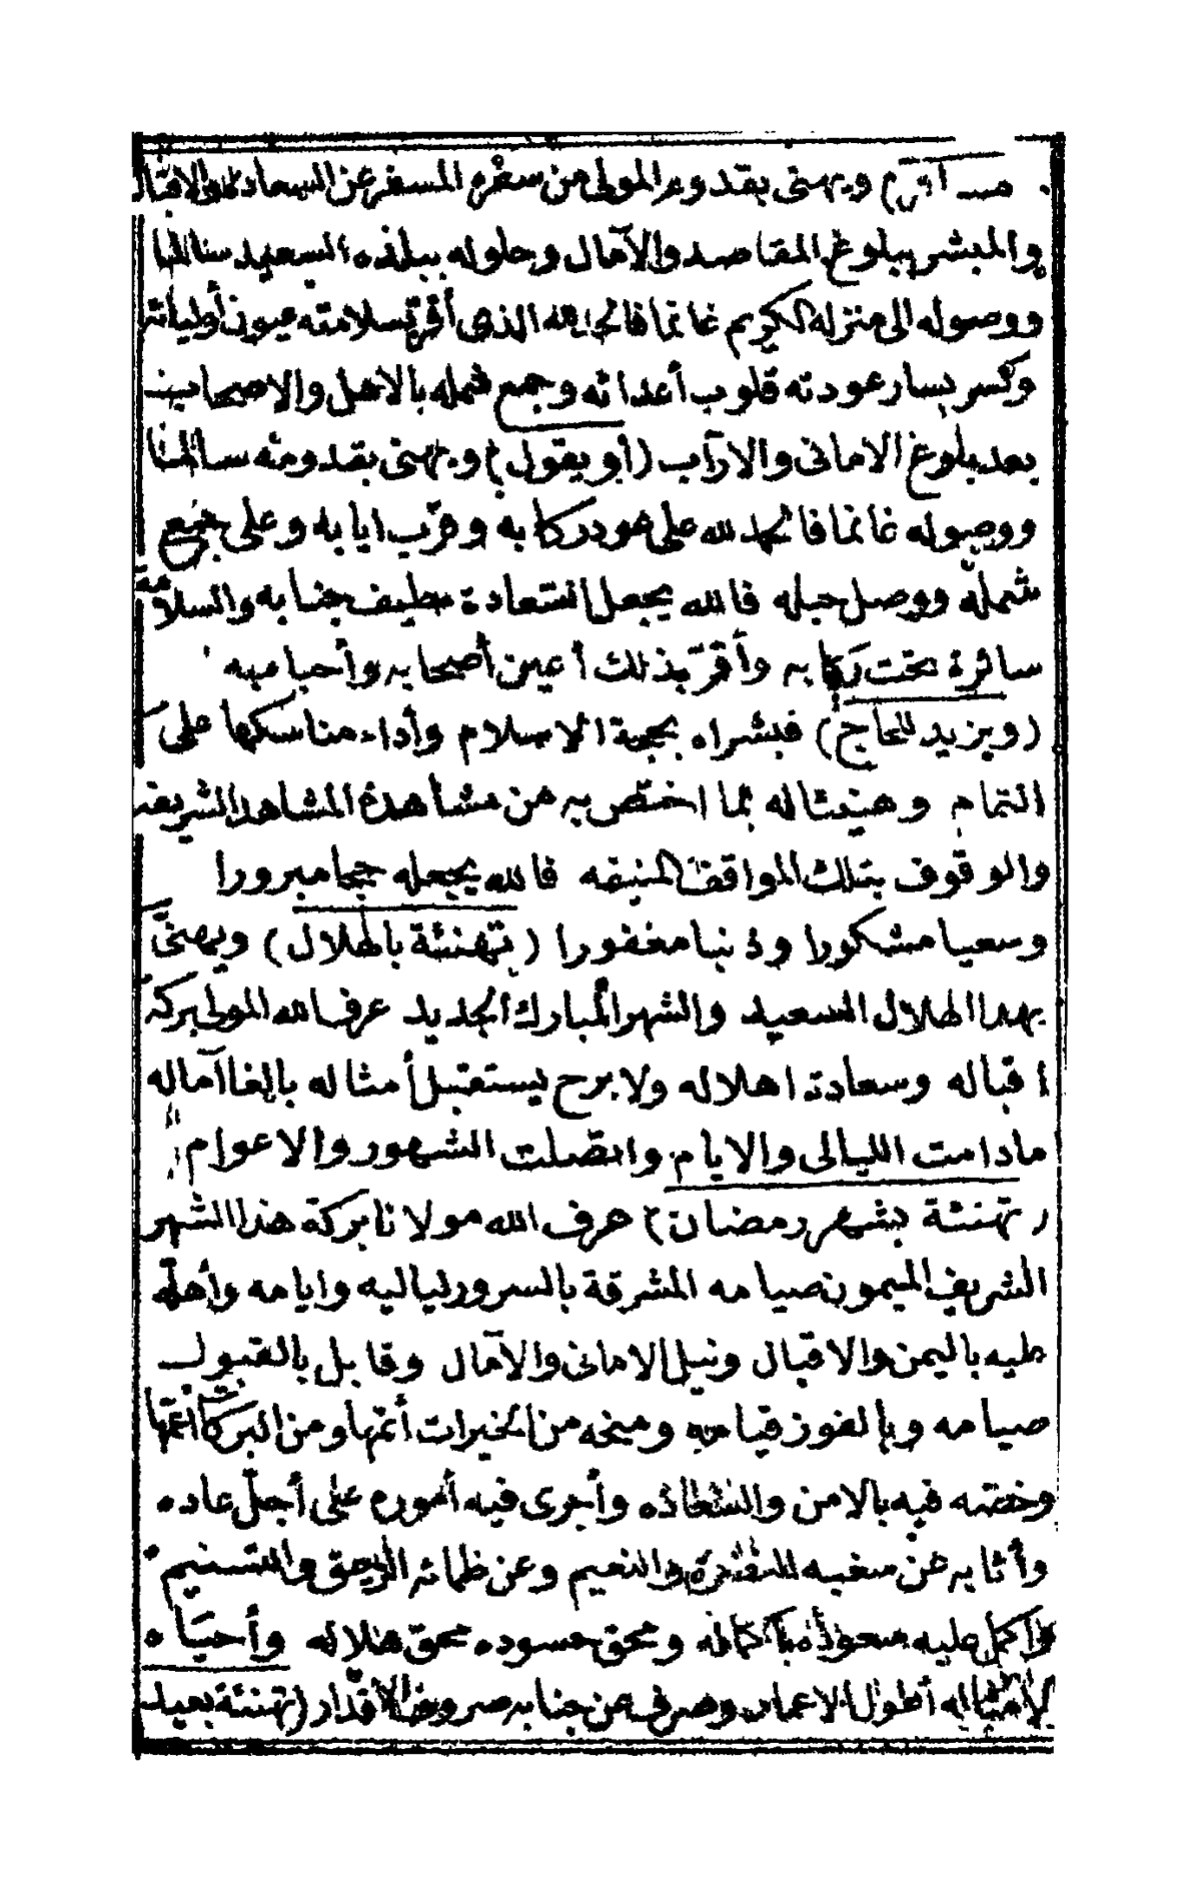 ويهنى بقدوم المولى من سفره المسفر عن السعادة والاقبال
والمبشر ببلوغ المقاصد والآمال وحلوله ببلده السعيد سالما
ووصوله الى منزله الكريم غانما فالحمد لله الذى أقر بسلامته عيون
وكسر بسار عودته قلوب أعدائه وجمع شمله بالاهل والاصحاب
بعد بلوغ الامانى والارآب (أو يقول) ويهنى بقدومه سالما
ووصوله غانما فالحمد لله على هو دركابه وقرّب ايابه وعلى جميع
شمله ووصل حبله فالله يجعل السعادة تطيف جنابه والسلامة
سائرة تحت ركابه وأقرّ بذلك أعين أصحابه وأحبابه
(ويزيد للحاج) فبشراه بحجة الاسلام وأداء مناسكها على
التمام وهنيئا له بما اختص به من مشاهدة المشاهد الشريفه
والوقوف بتلك المواقف المنيفه فالله يجعله حجا مبرورا
وسعيا مشكورا وذنبا مغفورا (تهنئة بالهلال) ويهنى
بهذا الهلال السعيد والشهر المبارك الجديد عرف الله المولى بركة
اقباله وسعادة اهلاله ولا برح يستقبل أمثاله بالغا آماله
مادامت الليالى والايام واتصلت الشهور والاعوام
(تهنئة بشهر رمضان) عرف الله مولانا بركة هذا الشهر
الشريف الميمون صيامه المشرقة بالسرور لياليه وايامه وأهله
عليه باليمن والاقبال ونيل الامانى والآمال وقابل بالقبول
صيامه وبالفوز قيامه ومنحه من الخيرات أتمها ومن البركات أعمها
وخصه فيه بالامن والسعاده وأجرى فيه أموره على أجل عاده
وأثابه عن سغبه والنعيم وعن ظمائه الرحيق والتسنيم
وأكمل عليه سعوده ومحق حسوده محق هلاله وأحياه
لأمثاله أطول الاعمار وصرف عن جنابه صروف الأقدار (تهنئة بعيد